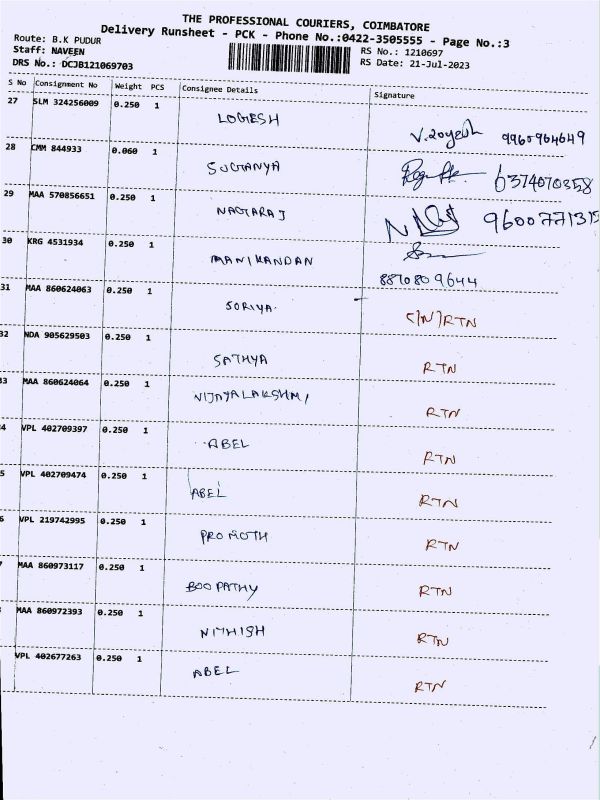 THE PROFESSIONAL COURIERS, COIMBATORE
Delivery Runsheet - PCK - Phone No.:0422-3505555 - Page No.:3
Route: B.K PUDUR RS No.: 1210697
Staff: NAVEEN RS Date: 21-Jul-2023
DRS No.: DCJB121069703
S No Consignment No Weight PCS Consignee Details Signature
27 SLM 324256009 0.250 1 LOGESH 9960964649
28 CMM 844933 0.060 1 SUGTANYA 6374070358
29 MAA 570856651 0.250 1 NAGTARAJ 9600771315
30 KRG 4531934 0.250 1 MANIKANDAN
8870809644
31 MAA 860624063 0.250 1 SORIYA C/N/RTN
32 NDA 905629503 0.250 1 SATHYA RTN
33 MAA 860624064 0.250 1 VIJAYALAKSHMI RTN
4 VPL 402709397 0.250 1 ABEL RTN
5 VPL 402709474 0.250 1 ABEL RTN
6 VPL 219742995 0.250 1 PROMOTH RTN
MAA 860973117 0.250 1 BOOPATHY RTN
MAA 860972393 0.250 1 NITHISH RTN
VPL 402677263 0.250 1 ABEL RTN